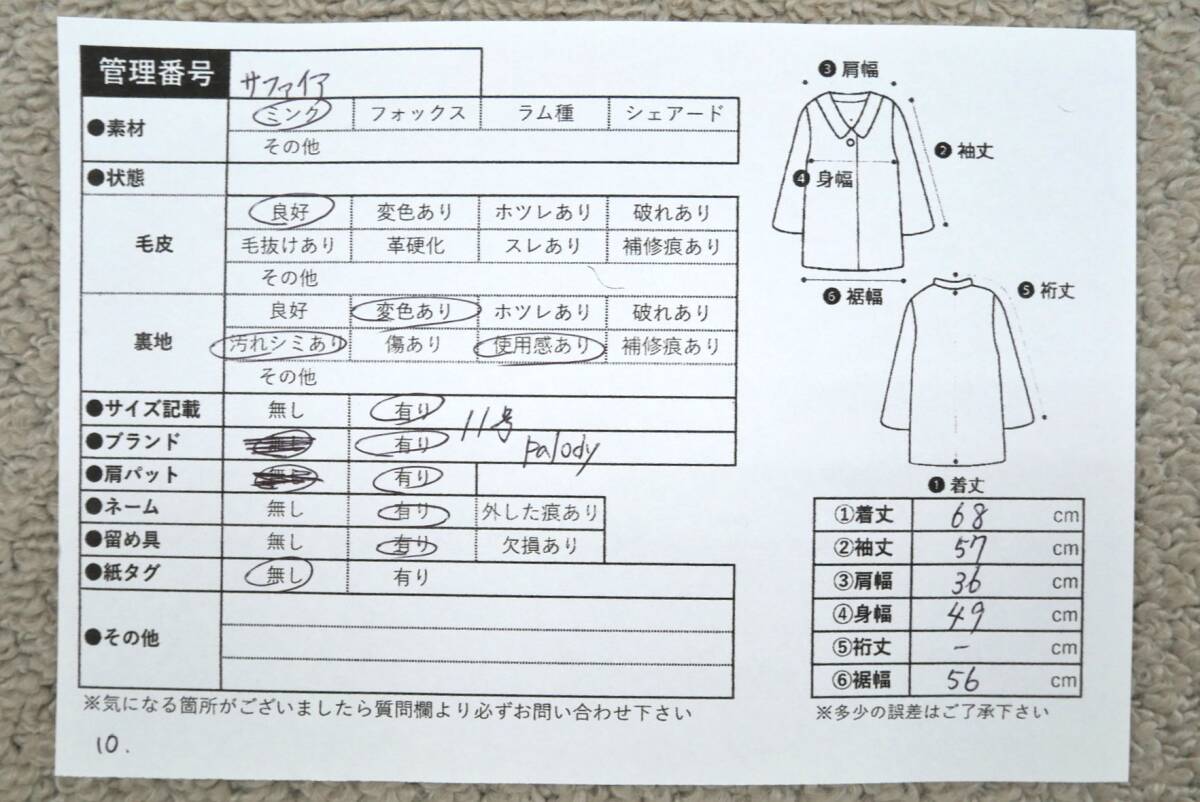 管理番号 サファイア
●素材 ミンク フォックス ラム種 シェアード
その他
●状態
毛皮 良好 変色あり ホツレあり 破れあり
毛抜けあり 革硬化 スレあり 補修痕あり
その他
裏地 良好 変色あり ホツレあり 破れあり
汚れシミあり 傷あり 使用感あり 補修痕あり
その他
●サイズ記載 無し 有り 11号
●ブランド 無し 有り palody
●肩パット 無し 有り
●ネーム 無し 有り 外した痕あり
●留め具 無し 有り 欠損あり
●紙タグ 無し 有り
●その他
※気になる箇所がございましたら質問欄より必ずお問い合わせ下さい
10.
❸肩幅
❷袖丈
❹身幅
❻裾幅
❺裄丈
❶着丈
①着丈 68 cm
②袖丈 57 cm
③肩幅 36 cm
④身幅 49 cm
⑤裄丈 - cm
⑥裾幅 56 cm
※多少の誤差はご了承下さい